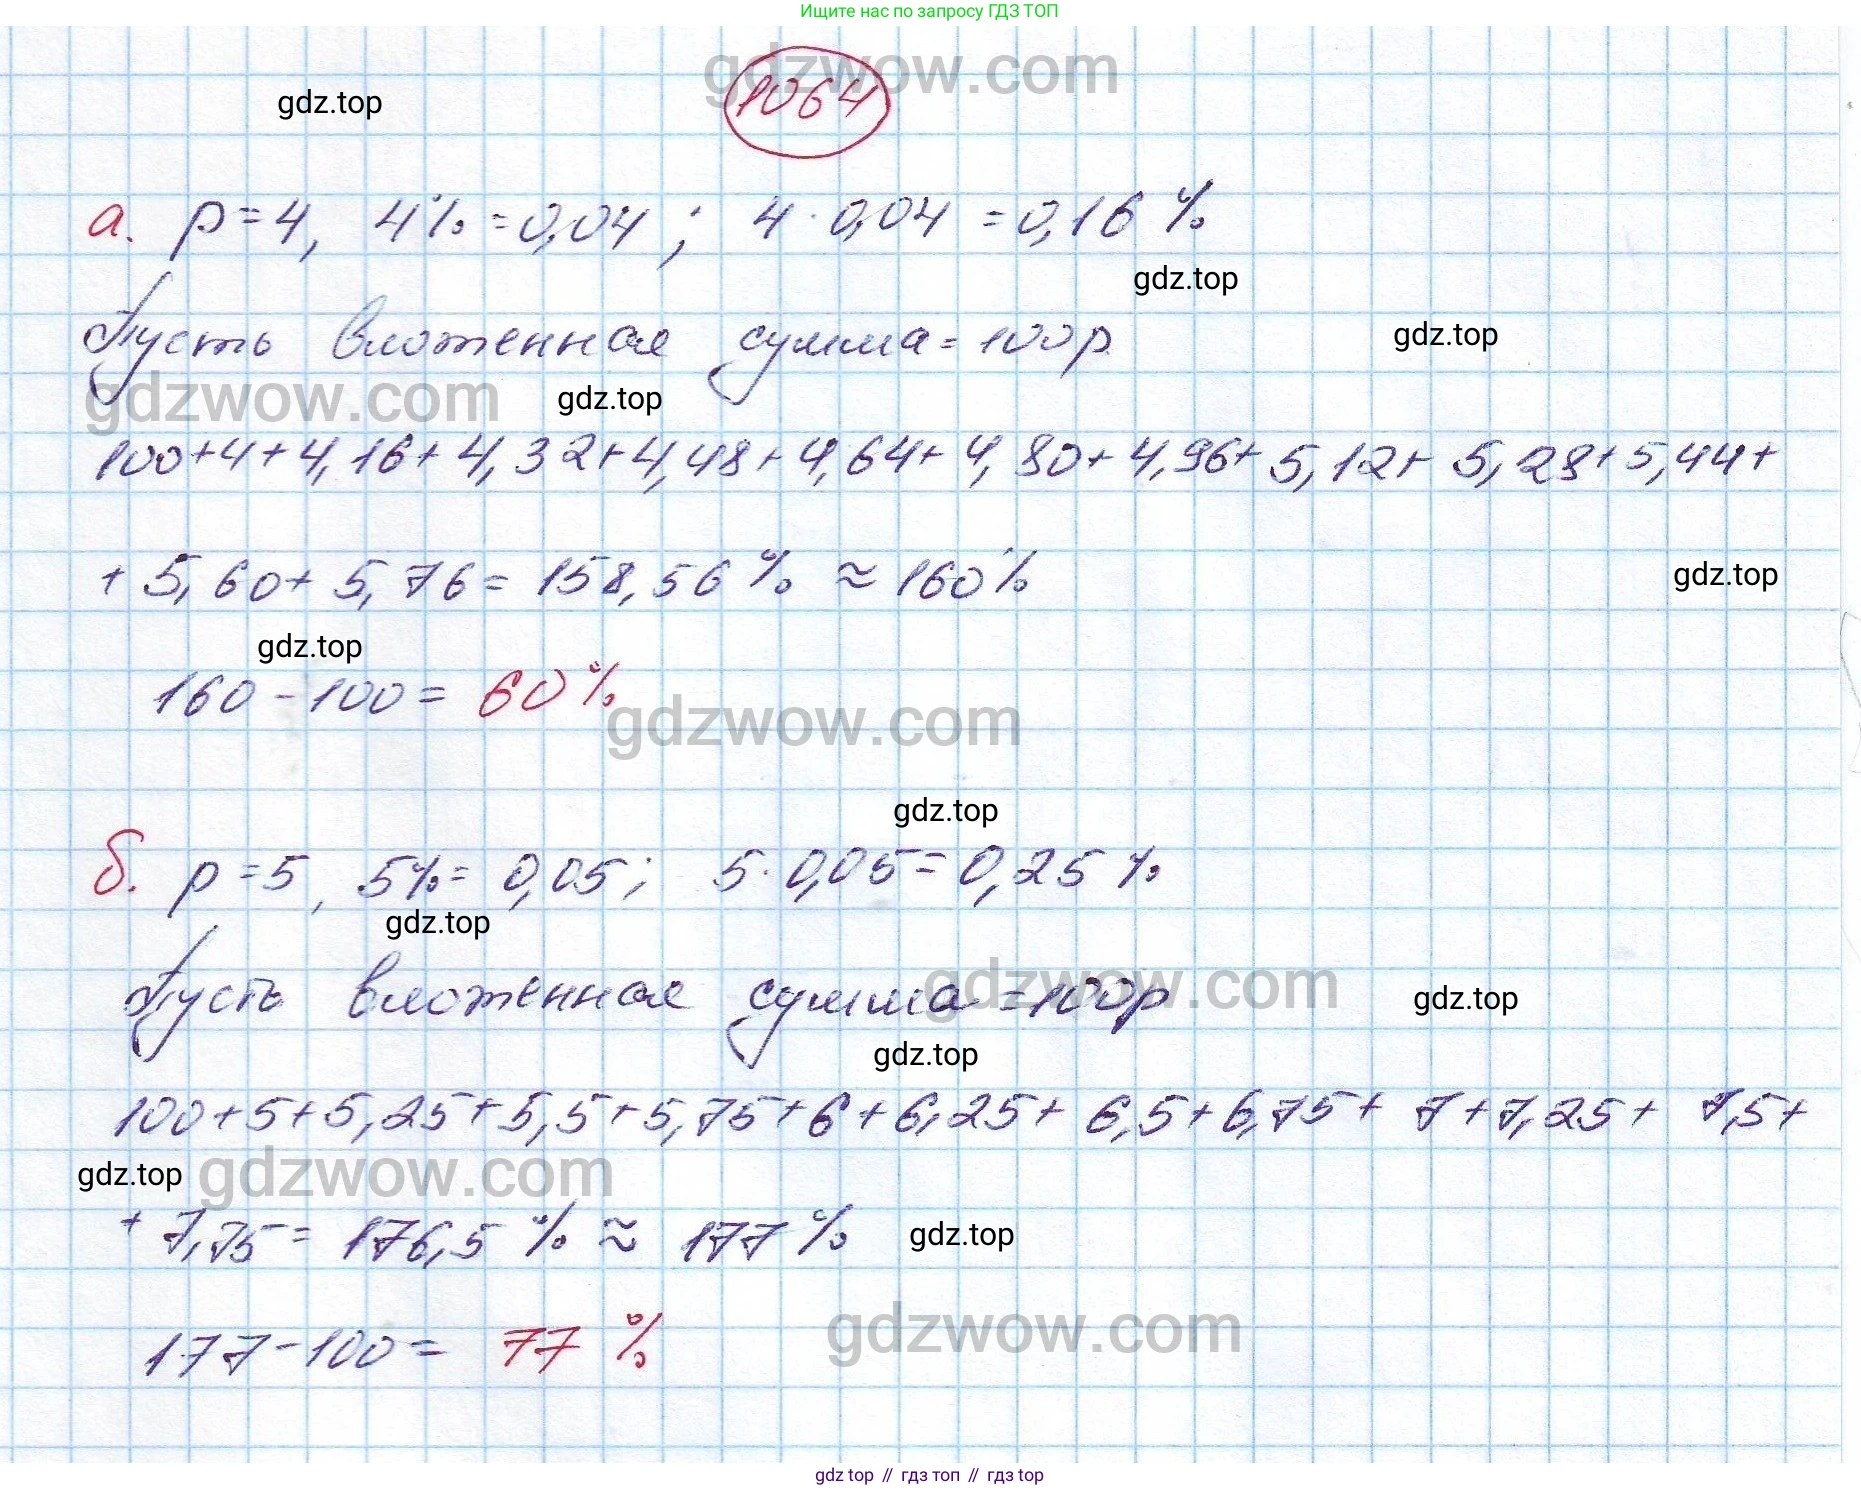 Ищите нас по запросу ГДЗ ТОП
gdzwow.com
1064
gdz.top
а. p=4, 4%=0,04; 4·0,04=0,16%
gdz.top
Пусть вложенная сумма=100р
gdz.top
gdzwow.com
gdz.top
100+4+4,16+4,32+4,48+4,64+4,80+4,96+5,12+5,28+5,44+
+5,60+5,76=158,56%≈160%
gdz.top
gdz.top
160-100=60%
gdzwow.com
gdz.top
б. p=5, 5%=0,05; 5·0,05=0,25%
gdz.top
Пусть вложенная сумма=100р
gdzwow.com
gdz.top
gdz.top
100+5+5,25+5,5+5,75+6+6,25+6,5+6,75+7+7,25+7,5+
gdz.top
gdzwow.com
+7,75=176,5%≈177%
gdz.top
177-100=77%
gdzwow.com
gdz top // гдз топ // гдз top